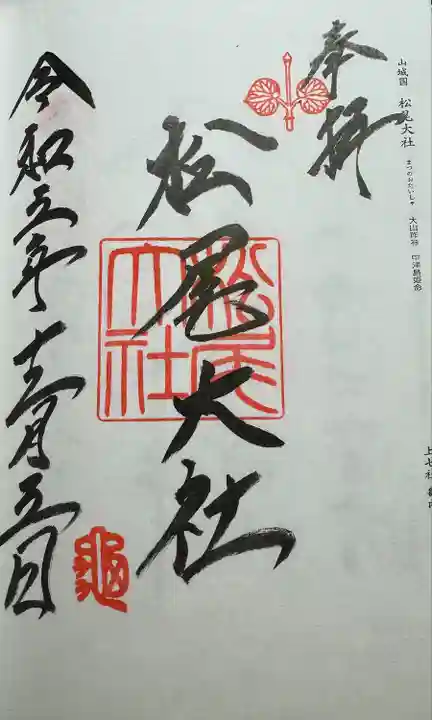 山城国 松尾大社 まつのおたいしゃ 大山咋神 中津島姫命
奉拝
松尾大社
松尾大社
令和三年十二月五日